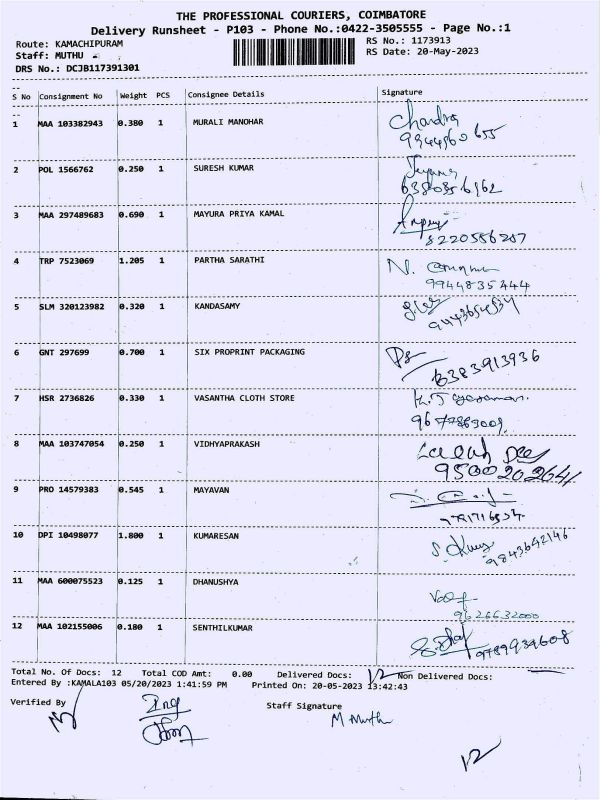 THE PROFESSIONAL COURIERS, COIMBATORE
Delivery Runsheet - P103 - Phone No.:0422-3505555 - Page No.:1
Route: KAMACHIPURAM RS No.: 1173913
Staff: MUTHU RS Date: 20-May-2023
DRS No.: DCJB117391301
S No Consignment No Weight PCS Consignee Details Signature
1 MAA 103382943 0.380 1 MURALI MANOHAR Chandra
9944560 655
2 POL 1566762 0.250 1 SURESH KUMAR
6380356162
3 MAA 297489683 0.690 1 MAYURA PRIYA KAMAL
8220556207
4 TRP 7523069 1.205 1 PARTHA SARATHI N.
9944835444
5 SLM 320123982 0.320 1 KANDASAMY
6 GNT 297699 0.700 1 SIX PROPRINT PACKAGING
6383913936
7 HSR 2736826 0.330 1 VASANTHA CLOTH STORE
9677863009
8 MAA 103747054 0.250 1 VIDHYAPRAKASH
9500202641
9 PRO 14579383 0.545 1 MAYAVAN
10 DPI 10498077 1.800 1 KUMARESAN
9843642146
11 MAA 600075523 0.125 1 DHANUSHYA
9626632000
12 MAA 102155006 0.180 1 SENTHILKUMAR
9789939608
Total No. Of Docs: 12 Total COD Amt: 0.00 Delivered Docs: 12 Non Delivered Docs:
Entered By :KAMALA103 05/20/2023 1:41:59 PM Printed On: 20-05-2023 13:42:43
Verified By Staff Signature
M Muthu
12